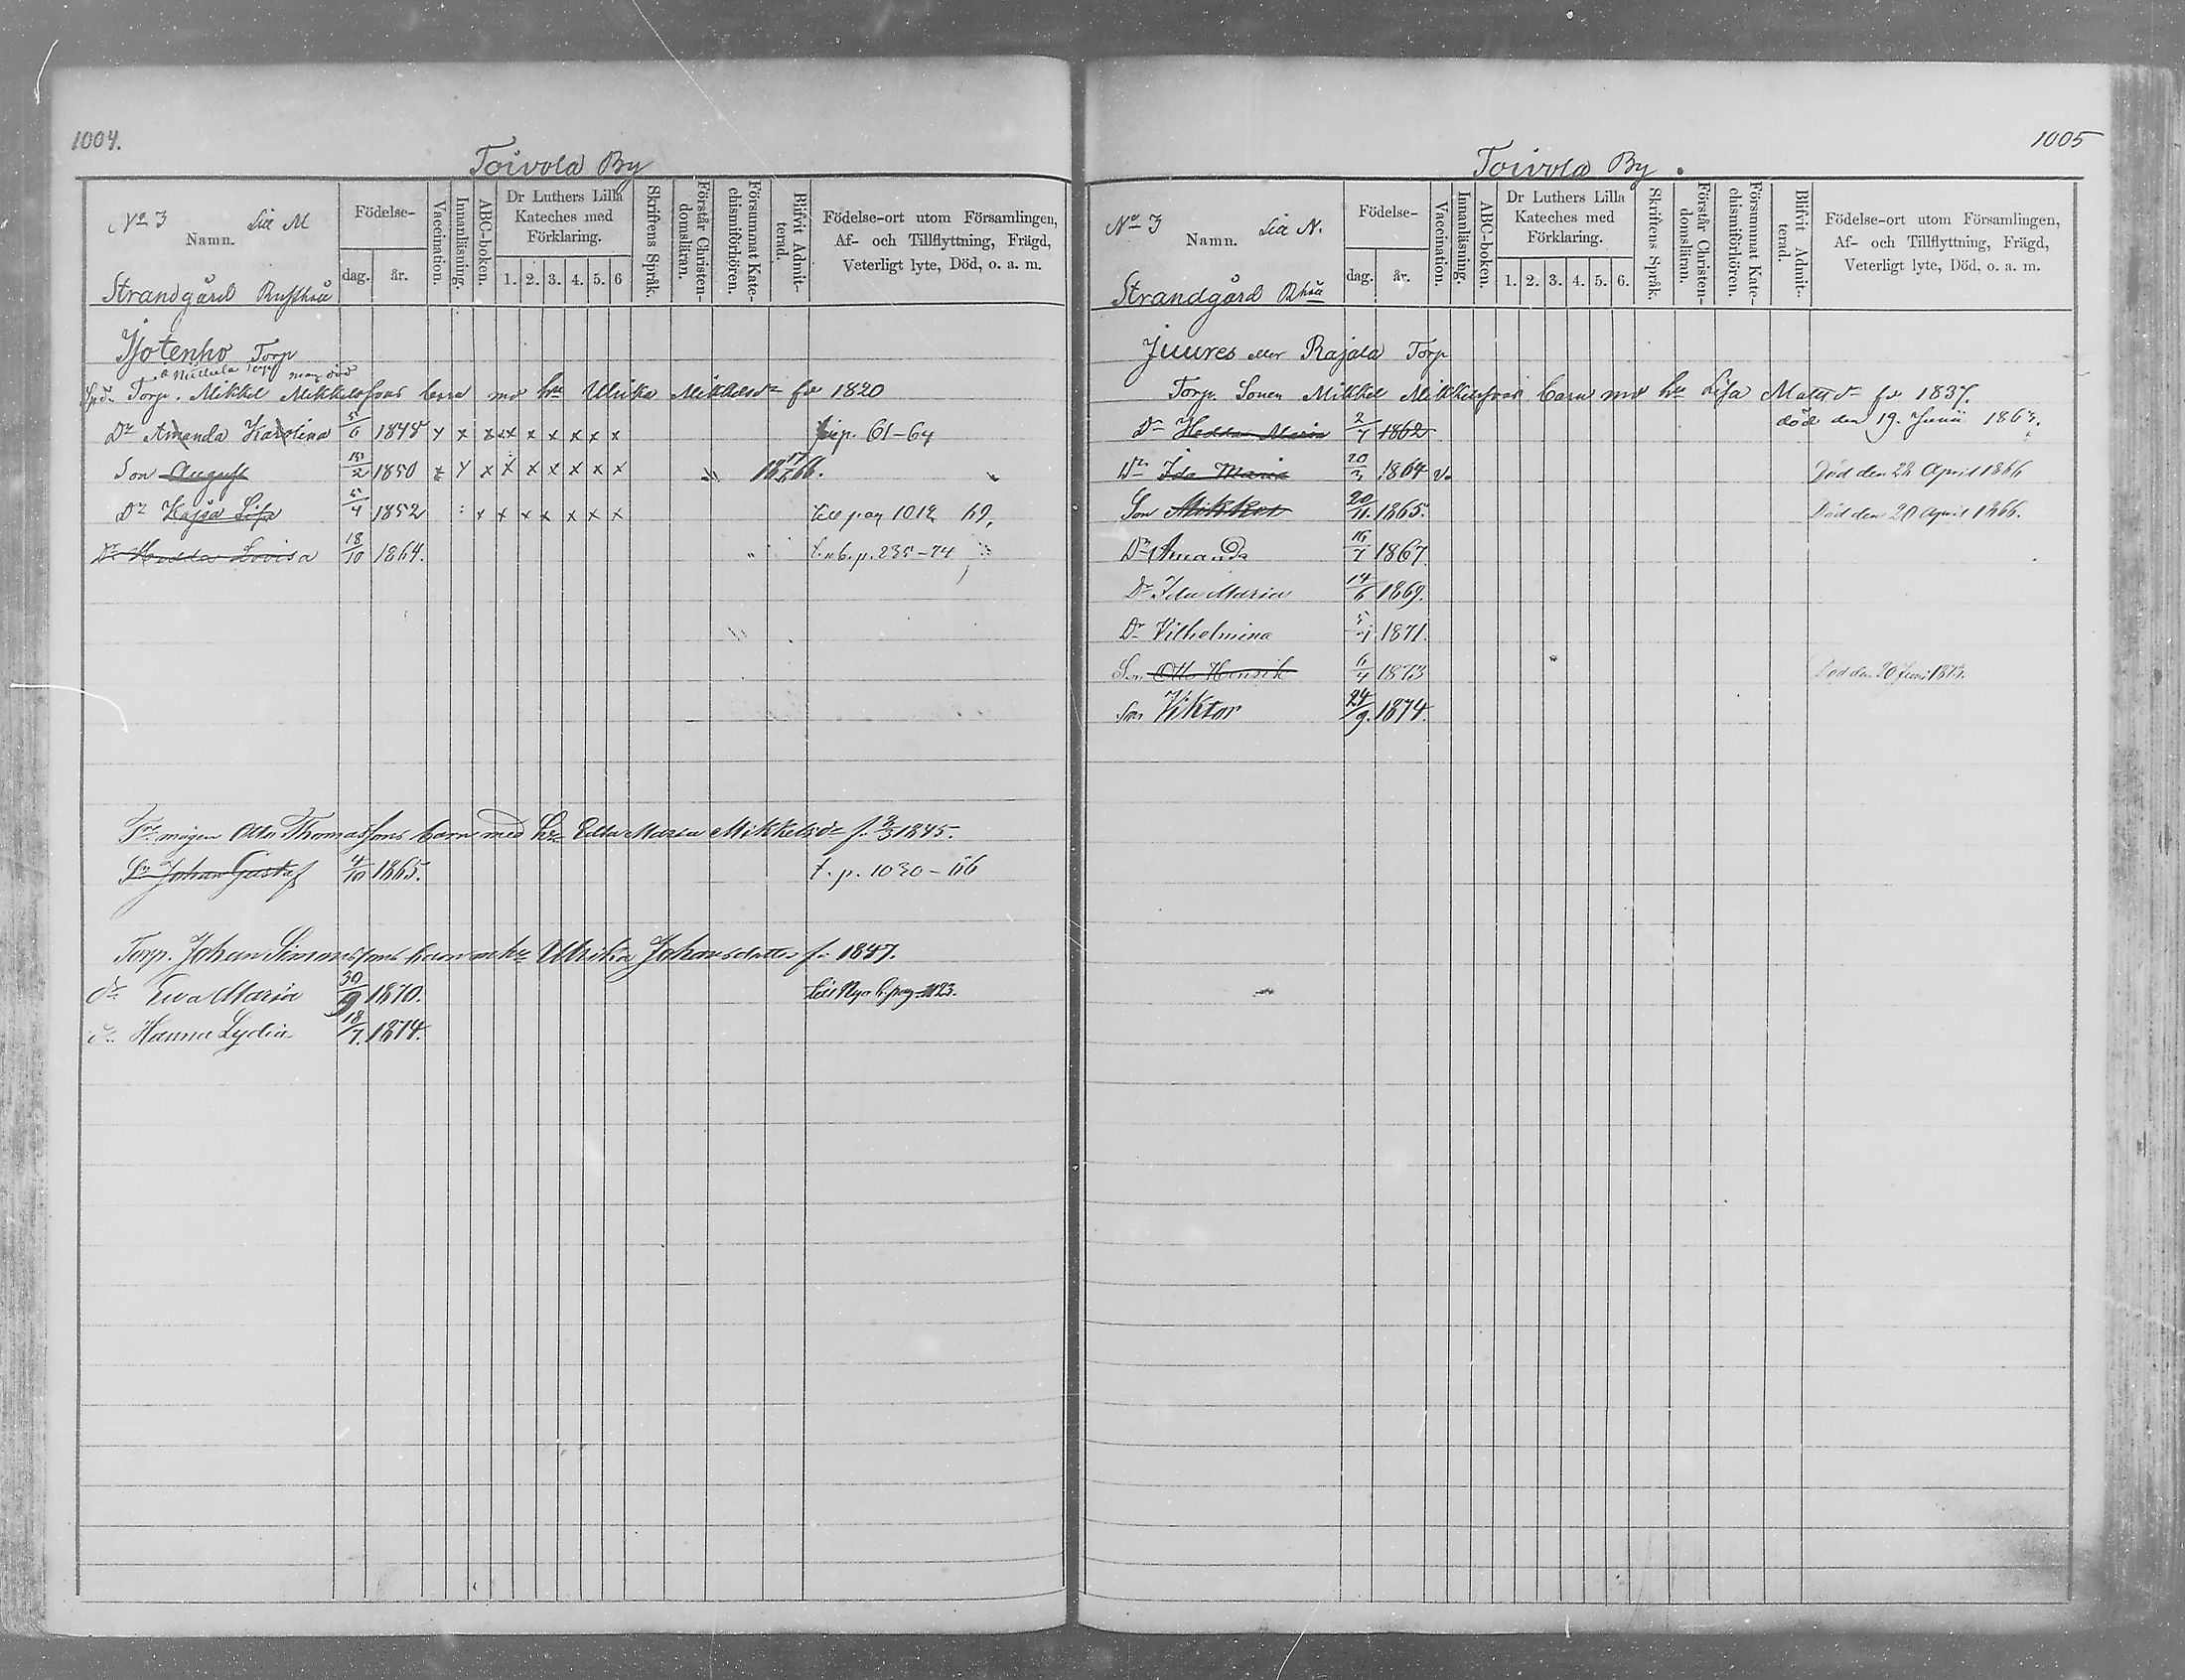 1004.
Toivola By
No 3 Lit M
Namn.
Strandgård Rusthåll
Födelse-
dag. år.
Vaccination.
Innanläsning.
ABC-boken.
Dr Luthers Lilla Kateches med Förklaring.
1. 2. 3. 4. 5. 6
Skriftens Språk.
Förstår Christendomsläran.
Försummat Katechismiförhören.
Blifvit Admitterad.
Födelse-ort utom Församlingen,
Af- och Tillflyttning, Frägd,
Veterligt lyte, Död, o. a. m.
Torp
Torp. Mikkel Mikkelssons barn md hu Ulrika Mikkelsdr fd 1820
Dr Amanda Karolina 5/6 1848 x x x x x x x x x p. 61-64
Son August 15/2 1850 x x x x x x x x x 1866.
Dr Kajsa Lisa 5/4 1852 x x x x x x x till pag 1012 69,
Dr Hedda Lovisa 18/10 1864. t. n. b. p. 235-74
mågen Otto Thomassons barn med hu Edla Maria Mikkelsdr f. 1845.
Sn Johan Gustaf 4/10 1865. t. p. 1030-66
Torp. Johan Simonssons barn m hu Ulrika Johansdotter f. 1847.
dr Eva Maria 30/9 1870. till Nya b. pag 1123.
dr Hanna Lydia 18/7. 1874.
1005
Toivola By.
No 3 Lit N.
Namn.
Strandgård Rhåll
Födelse-
dag. år.
Vaccination.
Innanläsning.
ABC-boken.
Dr Luthers Lilla Kateches med Förklaring.
1. 2. 3. 4. 5. 6.
Skriftens Språk.
Förstår Christendomsläran.
Försummat Katechismiförhören.
Blifvit Admitterad.
Födelse-ort utom Församlingen,
Af- och Tillflyttning, Frägd,
Veterligt lyte, Död, o. a. m.
Juures eller Rajala Torp
Torp. Sonen Mikkel Mikkelssons barn md hu Lisa Matsdr fd 1837.
Dr Hedda Maria 2/7 1862 död den 19. Junii 1863.
Dr Ida Maria 20/3 1864 v. Död den 28 April 1866
Son Mikkel 20/11. 1865. Död den 20 April 1866.
Dr Amanda 16/7 1867
Dr Ida Maria 14/6 1869.
Dr Vilhelmina 1871.
Son Otto Henrik 6/4 1873 Död den 20 Juni 1873.
Son Viktor 24/9. 1874.